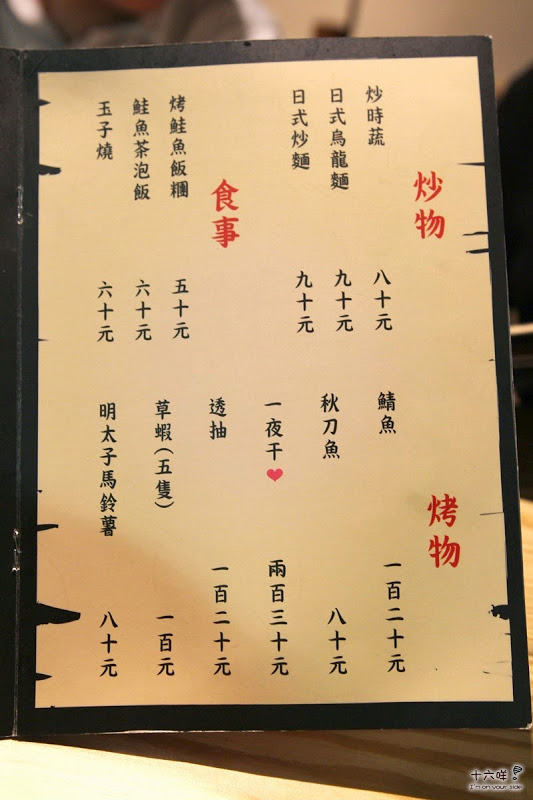 炒物
炒時蔬 八十元
日式烏龍麵 九十元
日式炒麵 九十元
食事
烤鮭魚飯糰 五十元
鮭魚茶泡飯 六十元
玉子燒 六十元
烤物
鯖魚 一百二十元
秋刀魚 八十元
一夜干❤ 兩百三十元
透抽 一百二十元
草蝦(五隻) 一百元
明太子馬鈴薯 八十元
十六咩
I'm on your side